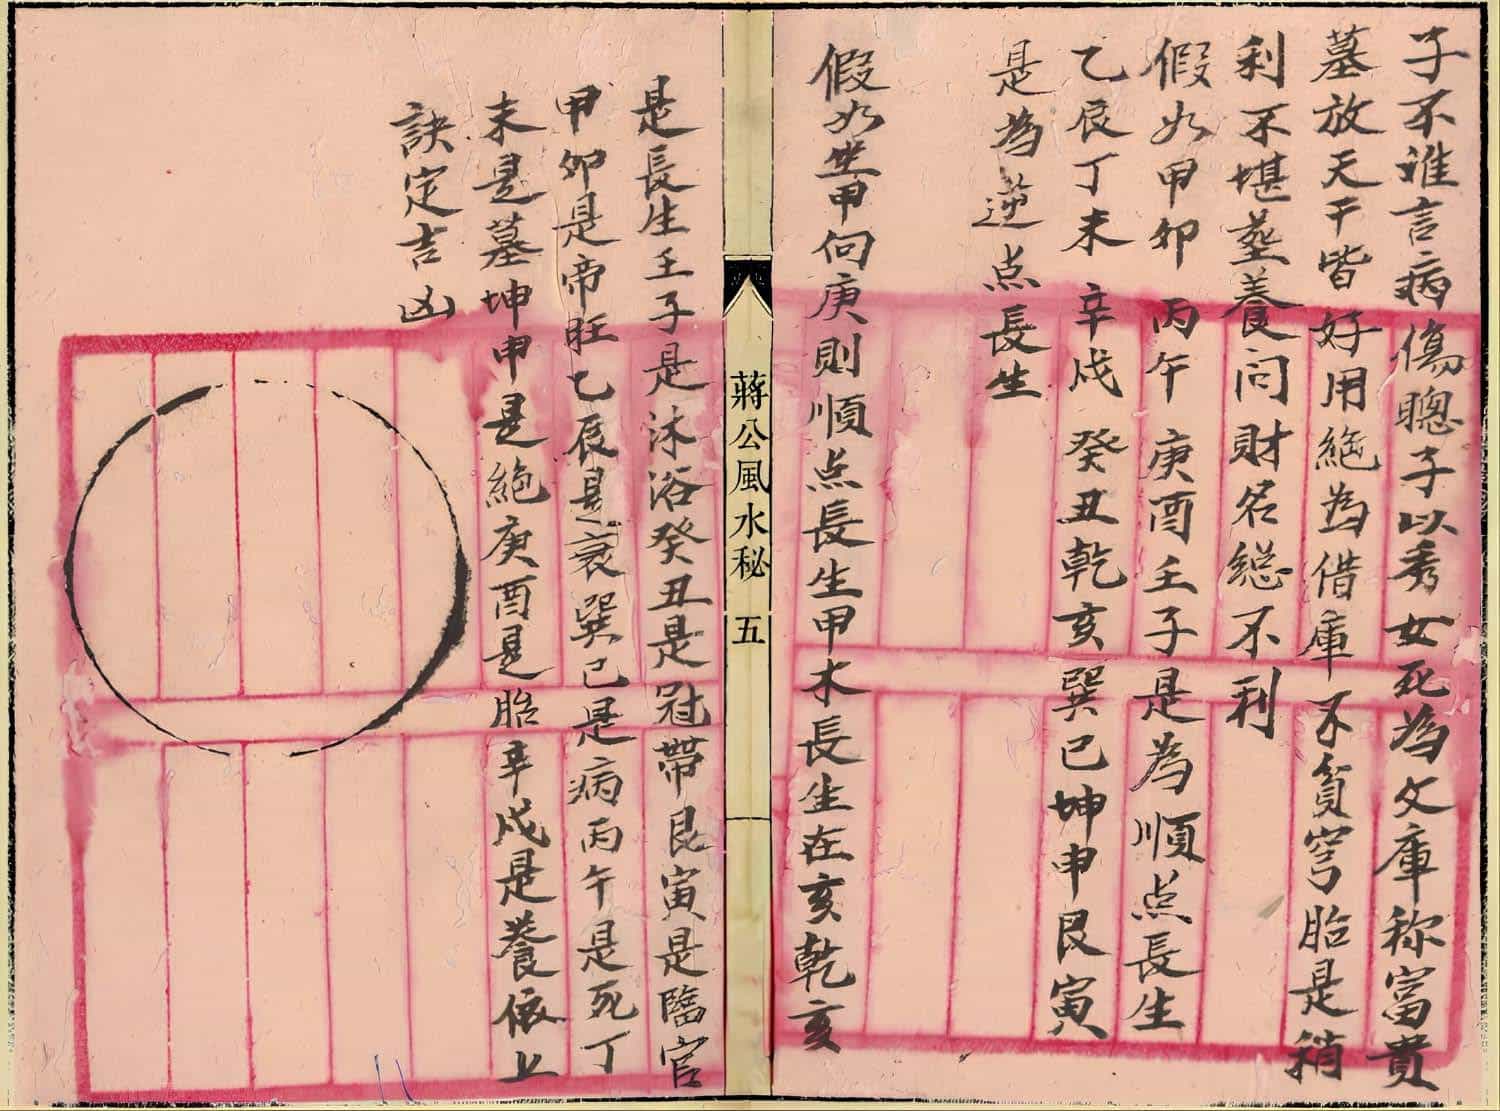 子不谁言病傷聰子以秀女死為文庫称富貴
墓放天干皆好用絕為借庫不貧穹胎是稍
利不堪塟養问財名縂不利
假如甲卯丙午庚酉壬子是為順点長生
乙辰丁未辛戌癸丑乾亥巽已坤申艮寅
是為逆点長生
假如坐甲向庚則順点長生甲木長生在亥乾亥
蔣公風水秘 五
是長生壬子是沐浴癸丑是冠帶艮寅是臨官
甲卯是帝旺乙辰是衰巽已是病丙午是死丁
未是墓坤申是絕庚酉是胎辛戌是養依上
訣定吉凶